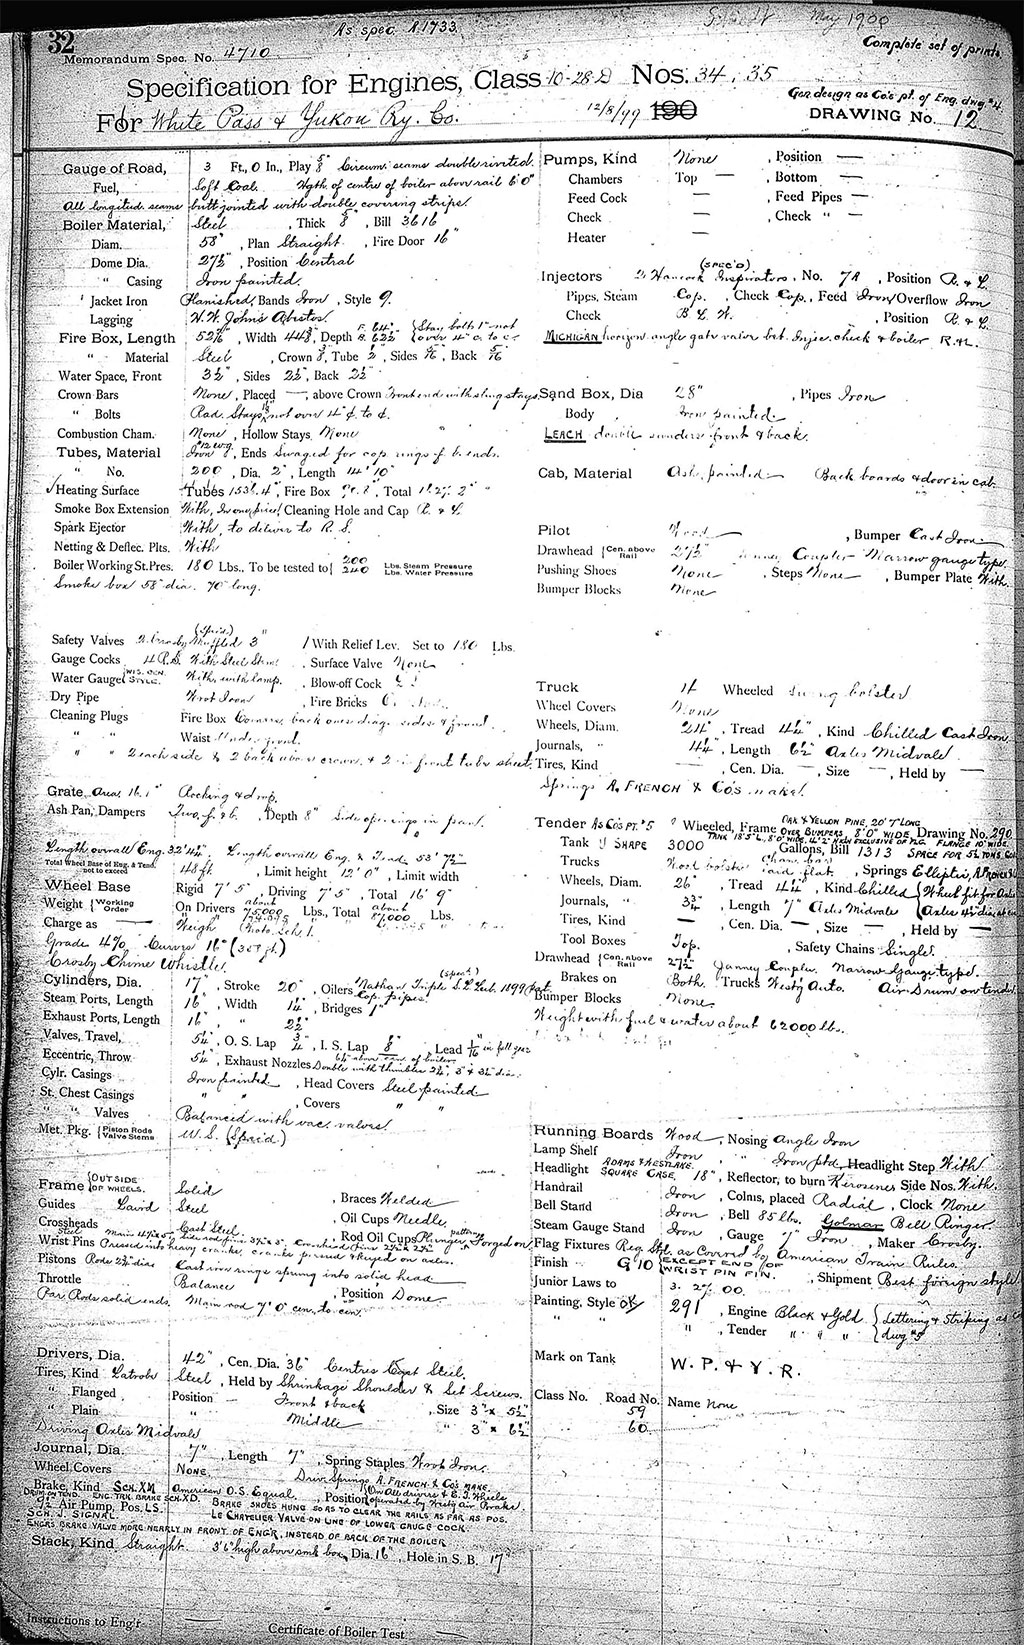 32
As spec. A1733.
May 1900
Memorandum Spec. No. 4710
Complete set of prints.
Specification for Engines, Class 10-28-D Nos. 34, 35
Gen design as Co's pt. of Eng. dwg #4.
For White Pass & Yukon Ry. Co.
12/8/99 190
DRAWING No. 12
Gauge of Road, 3 Ft., 0 In., Play 5/8" Circum. seams double rivited.
Fuel, Soft Coal. Hgth of centre of boiler above rail 6' 0"
All longitud. seams butt jointed with double covering strips.
Boiler Material, Steel, Thick 5/8", Bill 3616
Diam. 58", Plan Straight, Fire Door 16"
Dome Dia. 27½", Position Central
" Casing Iron painted.
" Jacket Iron Planished, Bands Iron, Style 9.
Lagging H.W. Johns Abestos.
Fire Box, Length, Width, Depth F. 64" B. 62½" {Stay bolts 1" not over 4" c. to c.
" Material Steel, Crown 3/8", Tube ½, Sides 5/16, Back 5/16
Water Space, Front 3½", Sides 2½", Back 2½"
Crown Bars None, Placed —, above Crown Front end with sling stays.
" Bolts Rad. Stays not over 4" ¢ to ¢.
Combustion Cham. None, Hollow Stays None
Tubes, Material Iron #12 W.G., Ends Swaged for cop. rings f. b. ends.
" No. 200, Dia. 2", Length 14' 10"
Heating Surface Tubes, Fire Box, Total
Smoke Box Extension With, In one piece, Cleaning Hole and Cap R. & L.
Spark Ejector With, to deliver to R. S.
Netting & Deflec. Plts. With
Boiler Working St. Pres. 180 Lbs., To be tested to {200 Lbs. Steam Pressure 240 Lbs. Water Pressure
Smoke box 58" dia. 70" long.
Safety Valves 2 Crosby Muffled 3" (Spec'd) 1 With Relief Lev. Set to 180 Lbs.
Gauge Cocks 4 R.S. With Steel Stems, Surface Valve None
Water Gauge {WIS. CEN. STYLE. With, with lamp., Blow-off Cock
Dry Pipe Wrot Iron, Fire Bricks
Cleaning Plugs Fire Box Corners, back ones diag. sides & front.
" " Waist Under front.
" " 2 each side & 2 back above crown & 2 in front tube sheet.
Grate Area 16.1" Rocking & dmp.
Ash Pan, Dampers Two, f. & b., Depth 8" Side openings in pan.
Length overall Eng. 32' 4¾" Length overall Eng. & Tend. 53' 7½"
Total Wheel Base of Eng. & Tend. not to exceed 48 ft., Limit height 12' 0", Limit width
Wheel Base Rigid 7' 5", Driving 7' 5", Total 16' 9"
Weight {Working Order On Drivers about 75,000 Lbs., Total about 87,000 Lbs.
Charge as Weigh Photo. Sch. 1.
Grade 4% Curves 16° (359 ft.)
Crosby Chime Whistle.
Cylinders, Dia. 17", Stroke 20", Oilers Nathan Triple S.F. Lub. 1899 pat. (spec'd) Cop. pipes.
Steam Ports, Length 16", Width 1¼", Bridges 1"
Exhaust Ports, Length 16", " 2½"
Valves, Travel, 5½", O. S. Lap ¾", I. S. Lap 1/8", Lead 1/16" in full gear
Eccentric, Throw 5½", Exhaust Nozzles Double with thimbles 2¾", 3" & 3¼" dia.
Cylr. Casings Iron painted, Head Covers Steel painted
St. Chest Casings " ", Covers " "
" " Valves Balanced with vac. valves.
Met. Pkg. {Piston Rods Valve Stems U.S. (Spec'd.)
Frame {OUTSIDE OF WHEELS. Solid, Braces Welded
Guides Laird Steel, Oil Cups Needle.
Crossheads Cast Steel, Rod Oil Cups Plunger pattern Forged on
Wrist Pins Steel Pressed into heavy cranks, cranks pressed & keyed on axles.
Pistons Rods 2¾" dia. Cast iron rings sprung into solid head
Throttle Balance, Position Dome.
Par. Rods solid ends. Main rod 7' 0" cen. to cen.
Drivers, Dia. 42", Cen. Dia. 36" Centres Cast Steel.
Tires, Kind Latrobe Steel, Held by Shrinkage Shoulder & Set Screws.
" Flanged Position — Front & back, Size 3" x 5½"
" Plain " Middle " 3" x 6½"
Driving Axles Midvale
Journal, Dia. 7", Length 7", Spring Staples Wrot Iron.
Wheel Covers NONE. Driv. Springs A. FRENCH & CO'S MAKE.
Brake, Kind SCH. XM American O.S. Equal., Position {On All drivers & E.T. Wheels operated by Westg air Brake.
DRUM ON TEND. ENG. TRK. BRAKE SCH. XD. BRAKE SHOES HUNG SO AS TO CLEAR THE RAILS AS FAR AS POS.
9½" Air Pump, Pos. L.S. LE CHATELIER VALVE ON LINE OF LOWER GAUGE COCK
SCH. J. SIGNAL.
ENGRS BRAKE VALVE MORE NEARLY IN FRONT OF ENG'R, INSTEAD OF BACK OF THE BOILER
Stack, Kind Straight 3' 6" high above smk box, Dia. 16", Hole in S. B. 17"
Instructions to Eng'r
Certificate of Boiler Test
Pumps, Kind None, Position —
Chambers Top —, Bottom —
Feed Cock —, Feed Pipes —
Check —, Check " —
Heater —
(SPEC'D)
Injectors 2 Hancock Inspirators, No. 7A, Position R. & L.
Pipes, Steam Cop., Check Cop., Feed Iron, Overflow Iron
Check B. L. W., Position R. & L.
MICHIGAN horizon. angle gate valve bet. Injec. check & boiler R. & L.
Sand Box, Dia 28", Pipes Iron
Body Iron painted.
LEACH double sanders front & back.
Cab, Material Ash, painted Back boards & door in cab.
Pilot Wood, Bumper Cast Iron.
Drawhead {Cen. above Rail 27½" Janney Coupler Narrow gauge type.
Pushing Shoes None, Steps None, Bumper Plate With.
Bumper Blocks None
Truck 4 Wheeled swing bolster
Wheel Covers None
Wheels, Diam. 24", Tread 4½", Kind Chilled Cast Iron.
Journals, " 4¼", Length 6½" Axles Midvale
Tires, Kind —, Cen. Dia. —, Size —, Held by —
Springs A. FRENCH & Co's make.
Tender AS CO'S PT. #5 Wheeled, Frame OAK & YELLOW PINE, 20' 7" LONG OVER BUMPERS, 8' 0" WIDE, Drawing No. 290
TANK 18' 5" L., 8' 0" WIDE, 4' 2" HIGH EXCLUSIVE OF FLG. FLANGE 10" WIDE.
Tank U SHAPE 3000 Gallons, Bill 1313 SPACE FOR 5½ TONS COAL
Trucks Wood bolster, Springs Elliptic,
Wheels, Diam. 26", Tread 4¼", Kind Chilled
Journals, " 3¾", Length 7" Axles Midvale
Tires, Kind —, Cen. Dia. —, Size —, Held by —
Tool Boxes Top., Safety Chains Single.
Drawhead {Cen. above Rail 27½" Janney Coupler. Narrow gauge type.
Brakes on Both. Trucks Westg Auto. Air Drum on tender
Bumper Blocks None.
Weight with fuel & water about 62000 lbs.
Running Boards Wood, Nosing Angle Iron
Lamp Shelf Iron, " Iron ptd., Headlight Step With
Headlight ADAMS & WESTLAKE. SQUARE CASE. 18", Reflector, to burn Kerosene Side Nos. With.
Handrail Iron, Colms, placed Radial, Clock None
Bell Stand Iron, Bell 85 lbs. Golmar Bell Ringer.
Steam Gauge Stand Iron, Gauge 7" Iron, Maker Crosby.
Flag Fixtures Reg Std. as Covered by American Train Rules.
Finish G 10 {EXCEPT END OF WRIST PIN FIN., Shipment Best foreign style
Junior Laws to 3. 27. 00.
Painting, Style OK 291, Engine Black & Gold {Lettering & Striping as
" " ", Tender " " " {dwg #5
Mark on Tank W. P. & Y. R.
Class No. Road No. Name None
59
60